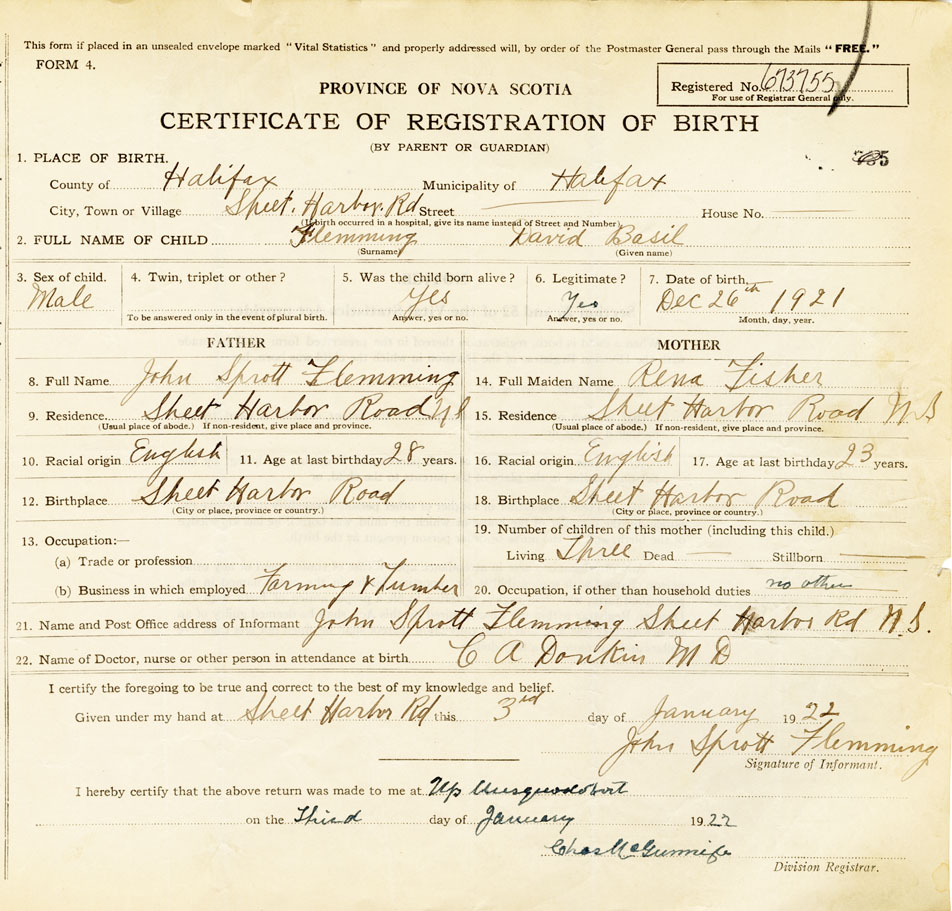 This form if placed in an unsealed envelope marked "Vital Statistics" and properly addressed will, by order of the Postmaster General pass through the Mails "FREE."
FORM 4.
Registered No. 673755
For use of Registrar General only.
PROVINCE OF NOVA SCOTIA
CERTIFICATE OF REGISTRATION OF BIRTH
(BY PARENT OR GUARDIAN)
1. PLACE OF BIRTH.
County of Halifax Municipality of Halifax
City, Town or Village Sheet Harbor Rd Street House No.
(If birth occurred in a hospital, give its name instead of Street and Number)
2. FULL NAME OF CHILD Flemming David Basil
(Surname) (Given name)
3. Sex of child. 4. Twin, triplet or other? 5. Was the child born alive? 6. Legitimate? 7. Date of birth.
Male Yes Yes Dec 26th 1921
To be answered only in the event of plural birth. Answer, yes or no. Answer, yes or no. Month, day, year.
FATHER MOTHER
8. Full Name John Sprott Flemming 14. Full Maiden Name Rena Fisher
9. Residence Sheet Harbor Road N S 15. Residence Sheet Harbor Road N.S
(Usual place of abode.) If non-resident, give place and province. (Usual place of abode.) If non-resident, give place and province.
10. Racial origin English 11. Age at last birthday 28 years. 16. Racial origin English 17. Age at last birthday 23 years.
12. Birthplace Sheet Harbor Road 18. Birthplace Sheet Harbor Road
(City or place, province or country.) (City or place, province or country.)
13. Occupation:— 19. Number of children of this mother (including this child.)
(a) Trade or profession Living Three Dead — Stillborn —
(b) Business in which employed Farming & Lumber 20. Occupation, if other than household duties no other
21. Name and Post Office address of Informant John Sprott Flemming Sheet Harbor Rd N.S.
22. Name of Doctor, nurse or other person in attendance at birth C A Donkin M D
I certify the foregoing to be true and correct to the best of my knowledge and belief.
Given under my hand at Sheet Harbor Rd this 3rd day of January 1922
John Sprott Flemming
Signature of Informant.
I hereby certify that the above return was made to me at Up Musquodobit
on the Third day of January 1922
Chas
Division Registrar.